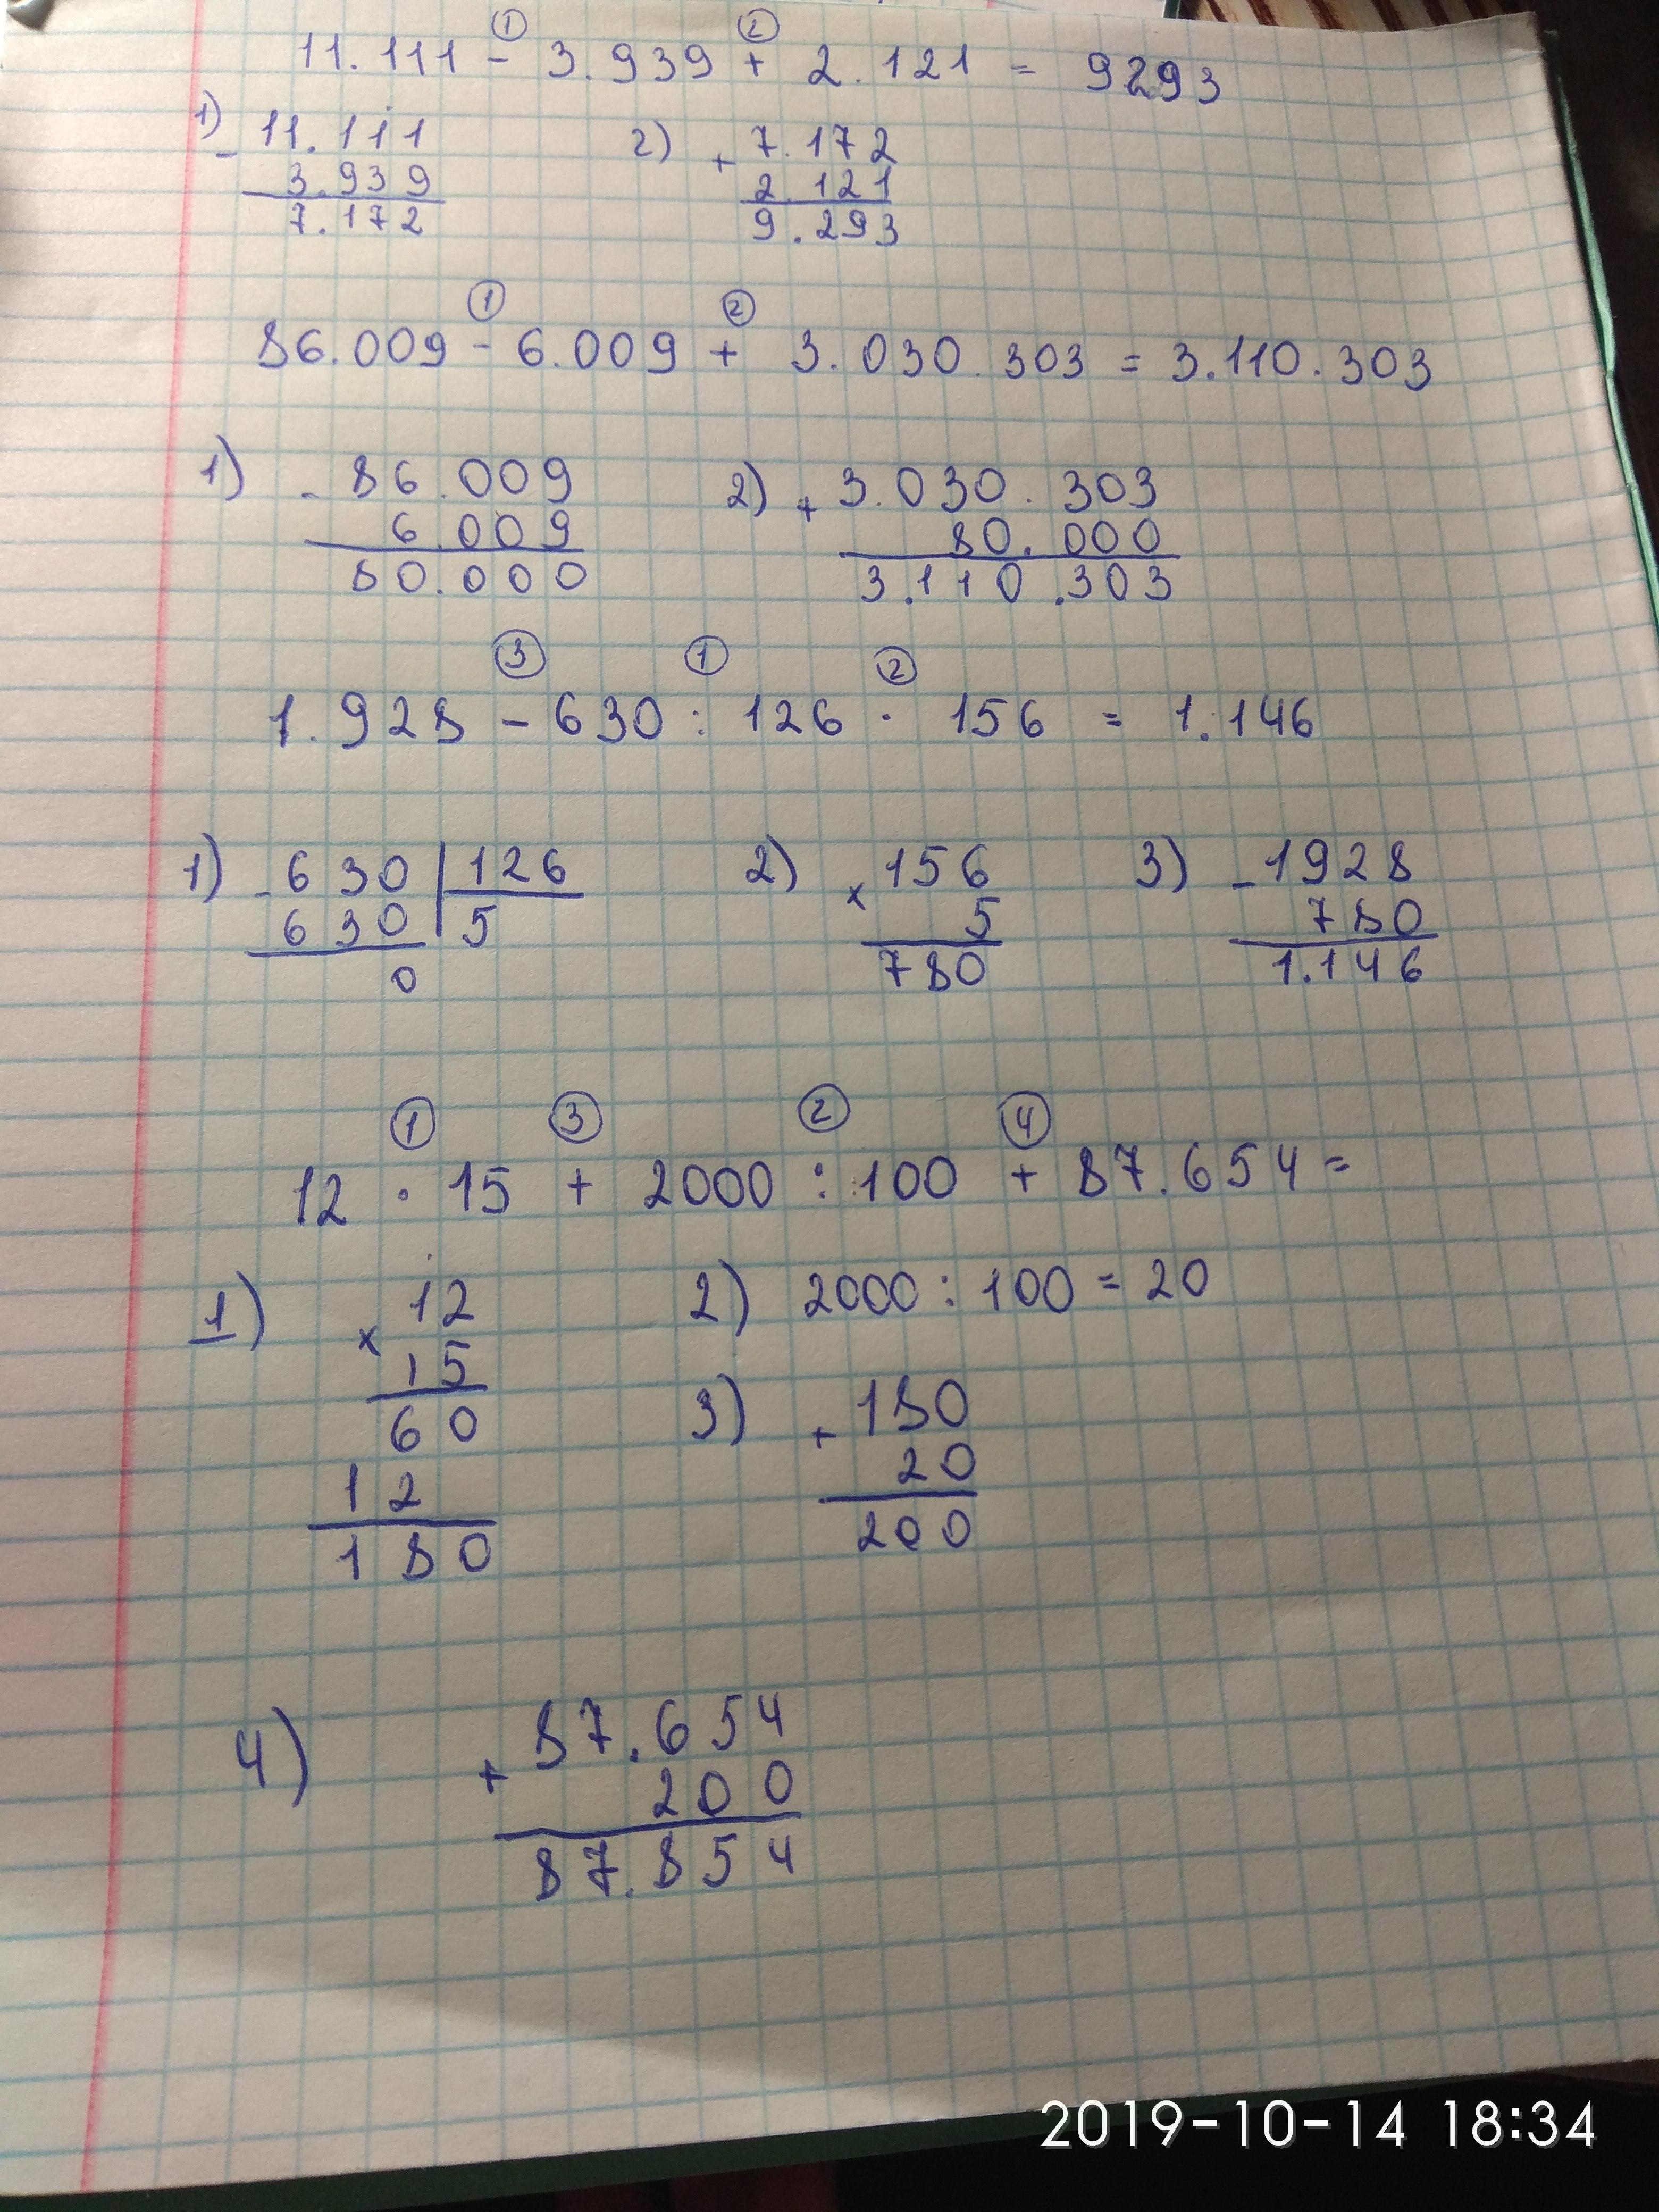 ① ②
11.111 - 3.939 + 2.121 = 9293
1) - 11.111 2) + 7.172
3.939 2.121
7.172 9.293
① ②
86.009 - 6.009 + 3.030.303 = 3.110.303
1) - 86.009 2) + 3.030.303
6.009 80.000
80.000 3.110.303
③ ① ②
1.928 - 630 : 126 · 156 = 1.146
1) - 630 126 2) x 156 3) - 1928
630 5 5 780
0 780 1.146
① ③ ② ④
12 · 15 + 2000 : 100 + 87.654 =
1) x 12 2) 2000 : 100 = 20
15
60 3) + 180
12 20
180 200
4) + 87.654
200
87.854
2019-10-14 18:34